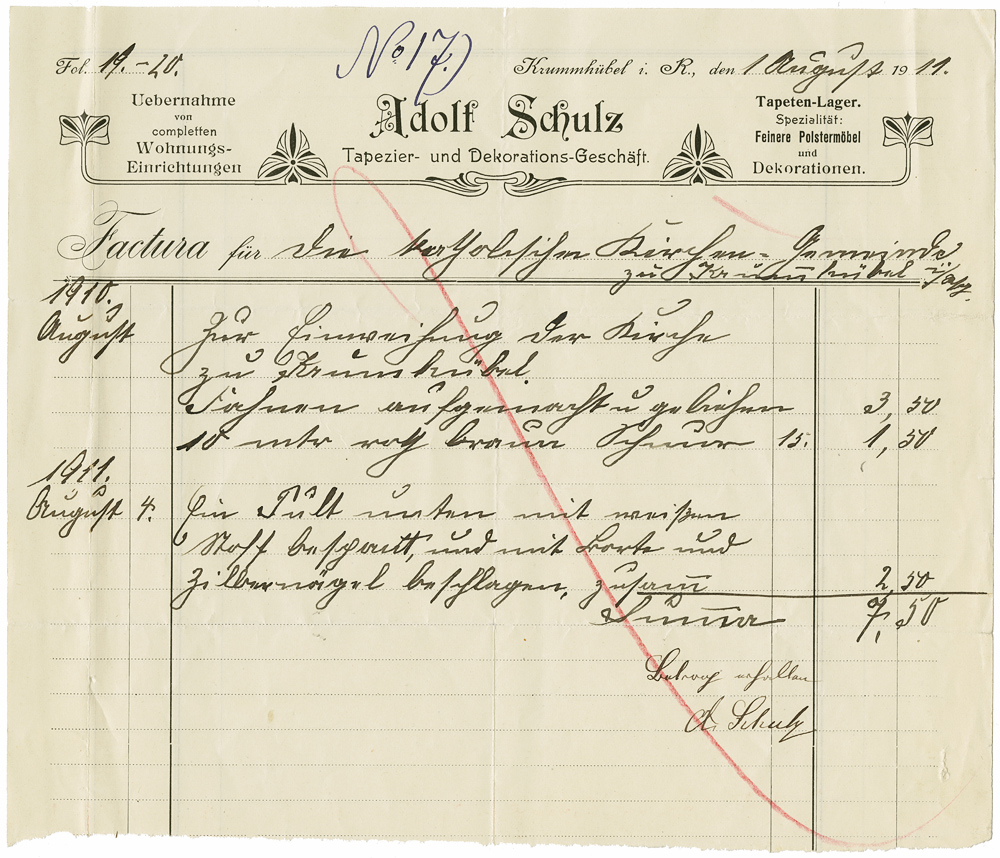 No 17.)
Fol. 19.-20.
Krummhübel i. R., den 1 August 1911.
Uebernahme
von
completten
Wohnungs-
Einrichtungen
Adolf Schulz
Tapezier- und Dekorations-Geschäft.
Tapeten-Lager.
Spezialität:
Feinere Polstermöbel
und
Dekorationen.
Factura für die katholischen Kirchen-Gemeinde
zu Krummhübel i/
1910.
August Zur Einweihung der Kirche
zu Krumhübel.
Fahnen aufgemacht u geliehen 3,50
10 mtr roth braun Schnur 15. 1,50
1911.
August 4. Ein Pult unten mit weißen
Stoff bespantt, und mit Borte und
Zilbernägel beschlagen, zusamm 2,50
Summa 7,50
Betrag erhalten
A. Schulz